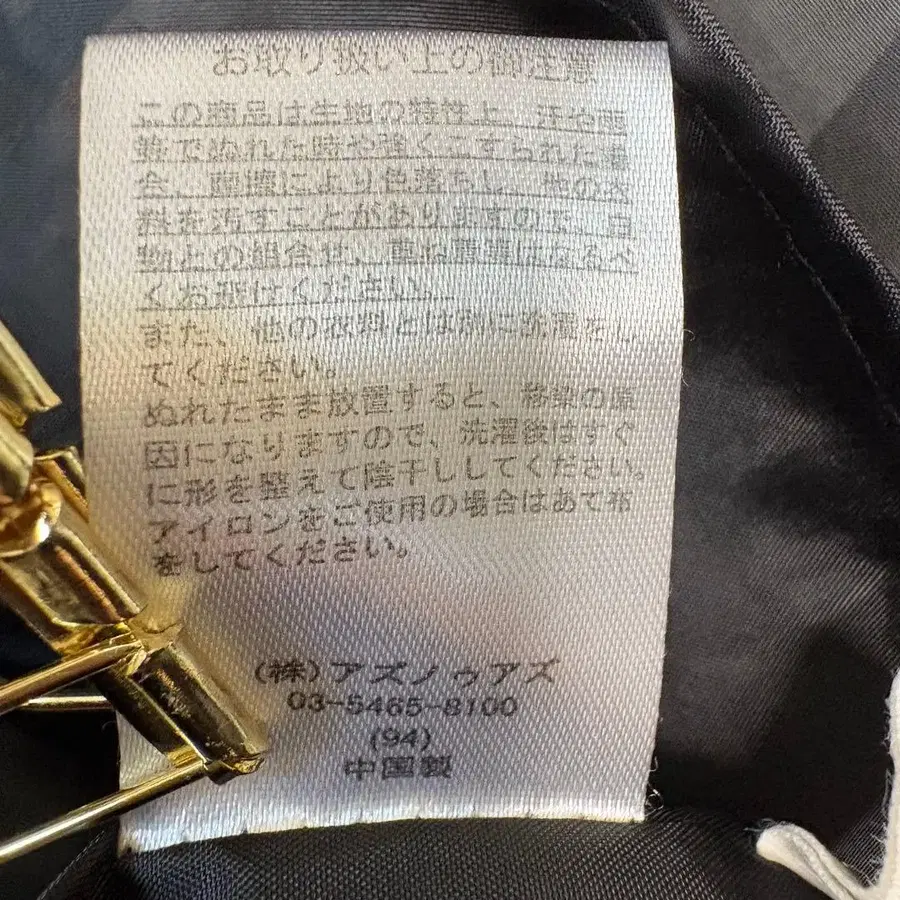 お取り扱い上の御注意
この商品は生地の特性上、汗や雨
等でぬれた時や強くこすられた場
合、摩擦により色落ちし、他の衣
料を汚すことがありますので、白
物との組合せ、重ね着等はなるべ
くお避けください。
また、他の衣料とは別に洗濯をし
てください。
ぬれたまま放置すると、移染の原
因になりますので、洗濯後はすぐ
に形を整えて陰干ししてください。
アイロンをご使用の場合はあて布
をしてください。
(株)アズノゥアズ
03-5465-8100
(94)
中国製